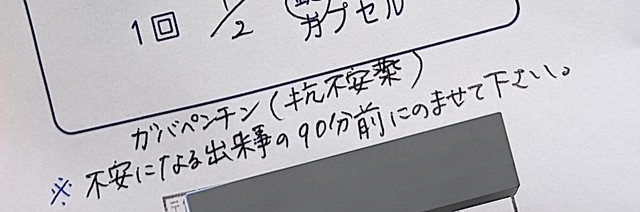 1回 1/2 カプセル
ガバペンチン(抗不安薬)
※不安になる出来事の90分前にのませて下さい。